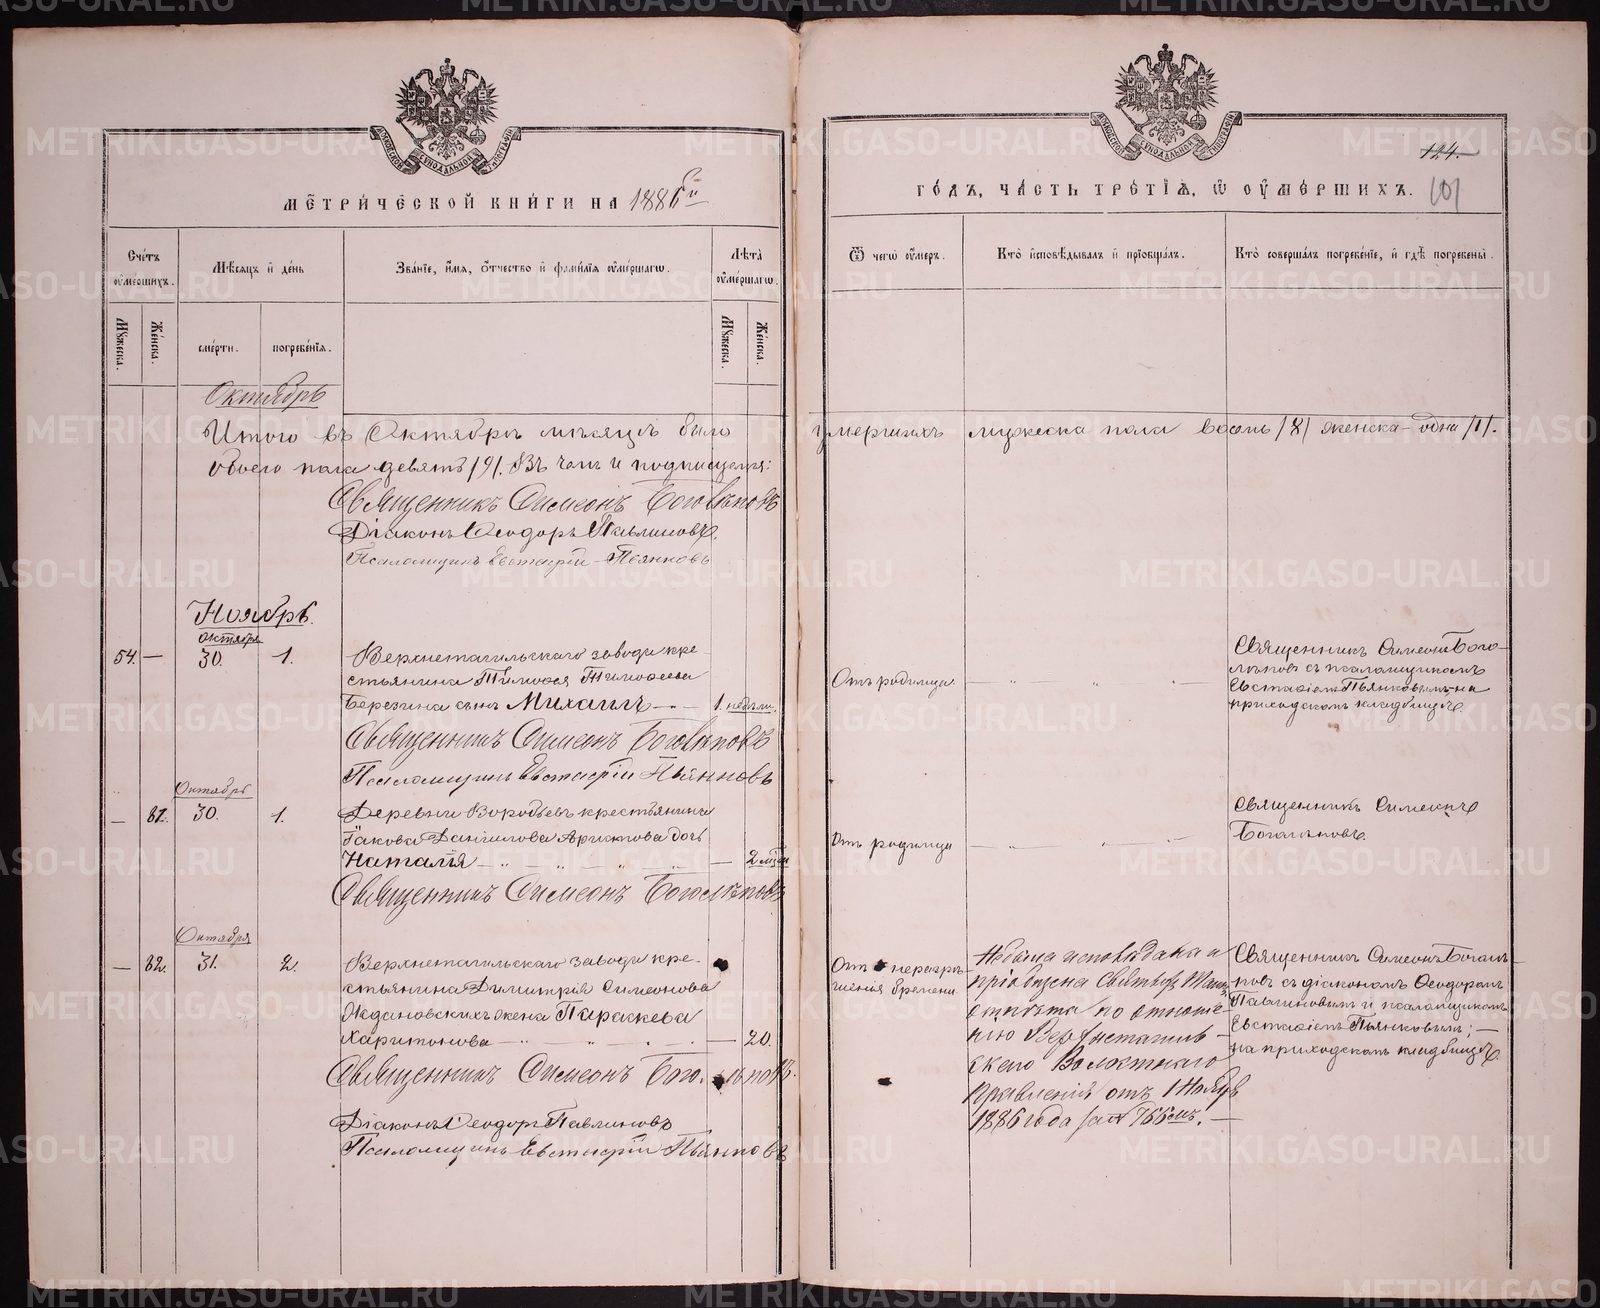 МЕТРИЧЕСКОЙ КНИГИ НА 1886й
Счетъ умершихъ.
Мѣсяцъ и день
Званіе, имя, отчество и фамилія умершагѡ.
Лѣта умершагѡ.
Мужеска.
Женска.
смерти.
погребенія.
Мужеска.
Женска.
Октябрь
Итого въ Октябрѣ мѣсяцѣ было
обоего пола девять /9/. Въ чемъ и подписуемся:
Священникъ Симеонъ Боголѣповъ
Діаконъ Ѳеодоръ Павлиновъ.
Псаломщикъ Евстафій Пьянковъ
Ноябрь.
октября
54. — 30. 1. Верхнетагильскаго завода кре-
стьянина Тимоѳея Тимоѳеева
Березина сынъ Михаилъ — 1 недѣли.
Священникъ Симеонъ Боголѣповъ
Псаломщикъ Евстафій Пьянковъ
Октября
— 81. 30. 1. Деревни Воробьевъ крестьянина
Іакова Даніилова дочь
Наталія — 2 мѣс.
Священникъ Симеонъ Боголѣповъ
Октября
— 82. 31. 2. Верхнетагильскаго завода кре-
стьянина Димитрія Симеонова
Ждановскихъ жена Параскева
Харитонова — 20.
Священникъ Симеонъ Боголѣповъ.
Діаконъ Ѳеодоръ Павлиновъ
Псаломщикъ Евстафій Пьянковъ
124.
101
ГОДЪ, ЧАСТЬ ТРЕТІЯ, Ѡ УМЕРШИХЪ.
Ѿ чегѡ умеръ.
Кто исповѣдывалъ и пріобщалъ.
Кто совершалъ погребеніе, и гдѣ погребены.
умершихъ мужеска пола восемь /8/ женска - одна /1/.
Священникъ Симеонъ Бого-
лѣповъ съ псаломщикомъ
Евстафіемъ Пьянковымъ на
приходскомъ кладбищѣ.
Отъ родимца
Священникъ Симеонъ
Боголѣповъ.
Отъ родимца
Отъ
шенія бремени
Не была исповѣдана и
пріобщена Святыхъ Таинъ
по отноше-
нію Верхнетагиль-
скаго Волостнаго
Правленія отъ 1 Ноября
1886 года за № 766мъ. —
Священникъ Симеонъ Боголѣ-
повъ съ діакономъ Ѳеодоромъ
Павлиновымъ и псаломщикомъ
Евстафіемъ Пьянковымъ; —
на приходскомъ кладбищѣ
METRIKI.GASO-URAL.RU